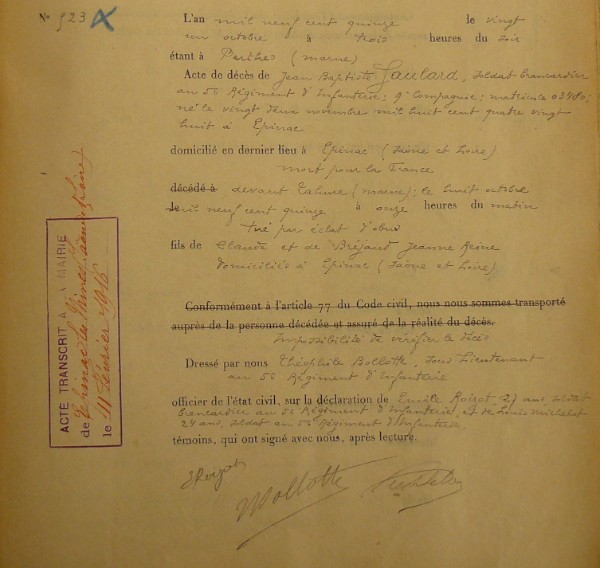 N° 923
L'an mil neuf cent quinze le vingt
un octobre à trois heures du soir
étant à Perthes (marne)
Acte de décès de Jean Baptiste Gaulard, soldat brancardier
au 56 Régiment d'Infanterie; 9e Compagnie; matricule 03480;
né le vingt deux novembre mil huit cent quatre vingt
huit à Epinac
domicilié en dernier lieu à Epinac (Saône et Loire)
mort pour la France
décédé à devant Tahure (marne); le huit octobre
le mil neuf cent quinze à onze heures du matin
tué par éclat d'obus
fils de Claude et de Bréjaud Jeanne Reine
domiciliés à Epinac (Saône et Loire)
Conformément à l'article 77 du Code civil, nous nous sommes transporté
auprès de la personne décédée et assuré de la réalité du décès.
Impossibilité de vérifier le décès
Dressé par nous Théophile Bollotte, Sous Lieutenant
au 56 Régiment d'Infanterie
officier de l'état civil, sur la déclaration de Emile 27 ans, soldat
brancardier au 56 Régiment d'Infanterie, et de Louis Michelot
24 ans, soldat au 56 Régiment d'Infanterie
témoins, qui ont signé avec nous, après lecture.
Bollotte
ACTE TRANSCRIT A LA MAIRIE
de Epinac les Mines (Saône & Loire)
le 11 février 1916